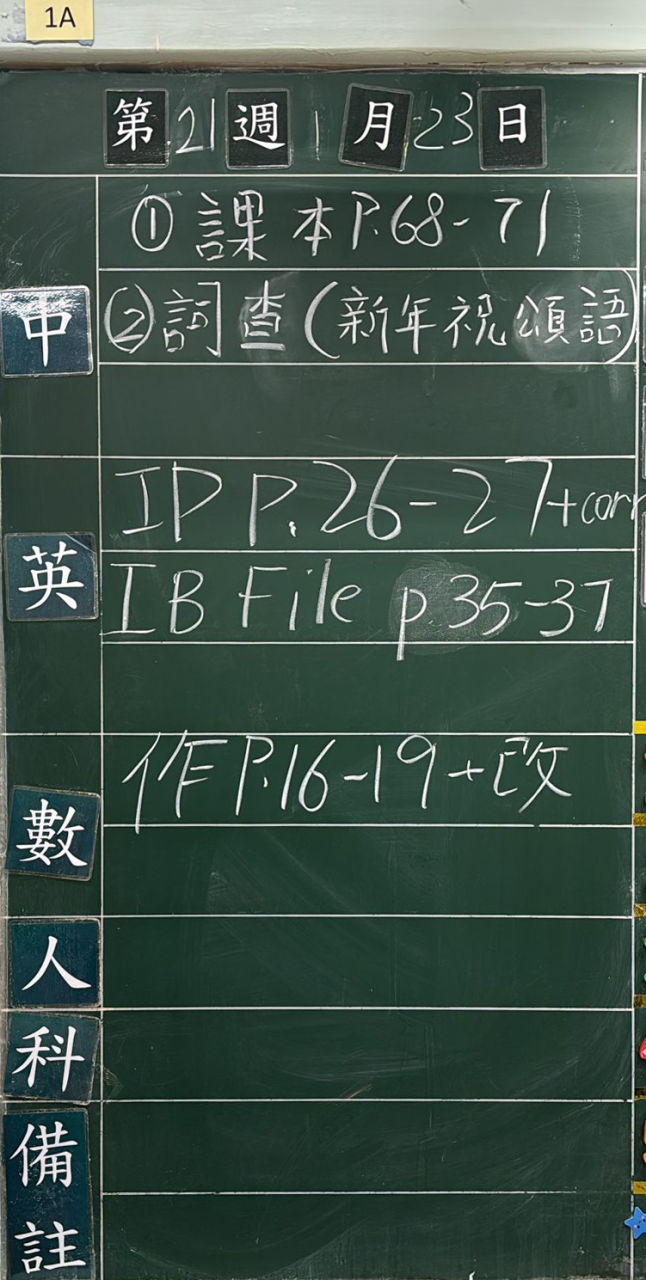 1A
第21週1月23日
①課本P.68-71
中
②詞查(新年祝頌語)
IP P.26-27+corr
英
IB File p.35-37
作P.16-19+改
數
人
科
備
註